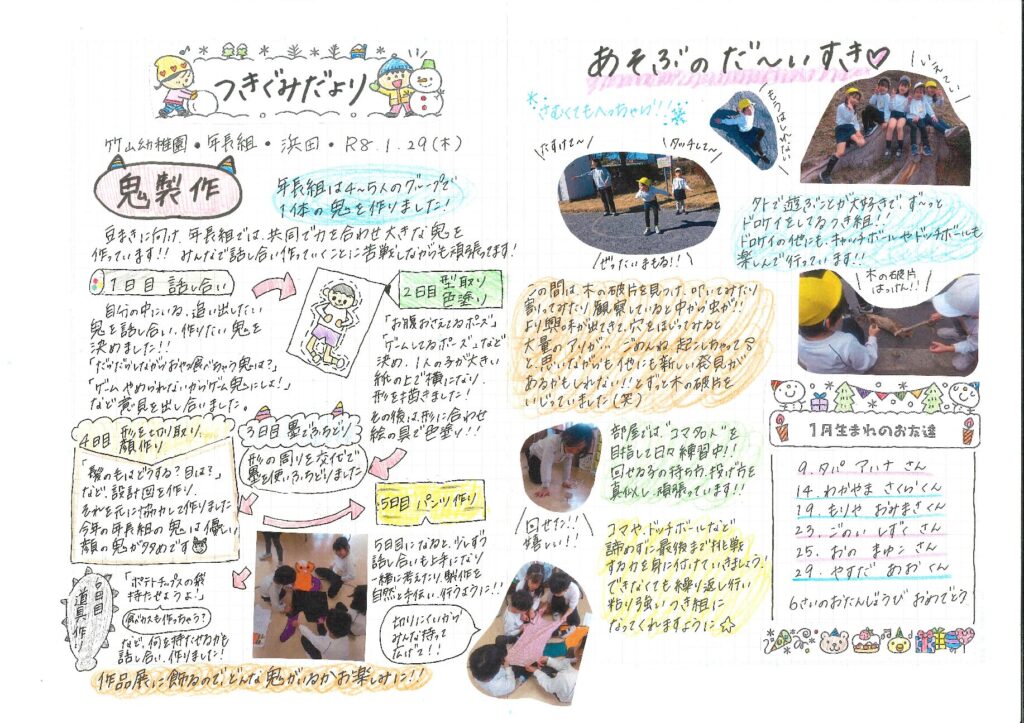 つきぐみだより
竹山幼稚園・年長組・浜田・R8.1.29(木)
鬼製作
年長組は4~5人のグループで
1体の鬼を作りました!
豆まきに向け、年長組では、共同で力を合わせ大きな鬼を
作っています!! みんなで話し合い作っていくことに苦戦しながらも頑張ってます!
1日目 話し合い
自分の中にいる、追い出したい
鬼を話し合い、作りたい鬼を
決めました!!
「だらだらしながらおやつ食べちゃう鬼は?」
「ゲームやめられないからゲーム鬼にしよ!」
など意見を出し合いました。
2日目 型取り
色塗り
「お腹おさえてるポーズ」
「ゲームしてるポーズ」など
決め、1人の子が大きい
紙の上で横になり、
形を描きました!
その後は、形に合わせ
絵の具で色塗り!!
3日目 墨でふちどり
形の周りを交代で
墨を使いふちどりました
4日目 形を切り取り、
顔作り
「髪の毛はどうする?目は?」
など、設計図を作り、
それを元に協力して作りました
今年の年長組の鬼は優しい
顔の鬼が多めです
5日目 パンツ作り
5日目になると、少しずつ
話し合いも上手になり
一緒に考えたり、製作を
自然と手伝い、行うように!!
切りにくいから
みんな持って
あげて!!
6日目 道具作り
「ポテトチップスの袋
持たせようよ!」
食べカスも作っちゃう?
など、何を持たせるかも
話し合い、作りました!
作品展に飾るので、どんな鬼がいるかお楽しみに!!
あそぶのだ~いすき♡
さむくてもへっちゃら!!
たすけて~
タッチして~
ぜったいまもる!!
いえ~い
外で遊ぶことが大好きで、ず~っと
ドロケイをしてるつき組!!
ドロケイの他にも、キャッチボールやドッチボールも
楽しんで行っています!!
この間は、木の破片を見つけ、叩いてみたり
割ってみたり観察していると中から虫が!!
より興味が出てきて、穴をほじってみると
大量のアリが… ごめんね起こしちゃって
と、思いながらも他にも新しい発見が
あるかもしれない!!とずっと木の破片を
いじっていました(笑)
木の破片
はっけん!!
部屋では、“コマ名人”を
目指して日々練習中!!
回せる子の持ち方、投げ方を
真似し、頑張っています!!
回せた!!
嬉しい!!
コマや、ドッチボールなど
諦めずに最後まで挑戦
する力を身に付けていきましょう!
できなくても繰り返し行い
粘り強いつき組に
なってくれますように☆
1月生まれのお友達
9. タパ アハナ さん
14. わかやま さくらくん
19. もりや おみまさくん
23. ごのい しずく さん
25. おの まゆこ さん
29. やすだ あおくん
6さいのおたんじょうび おめでとう